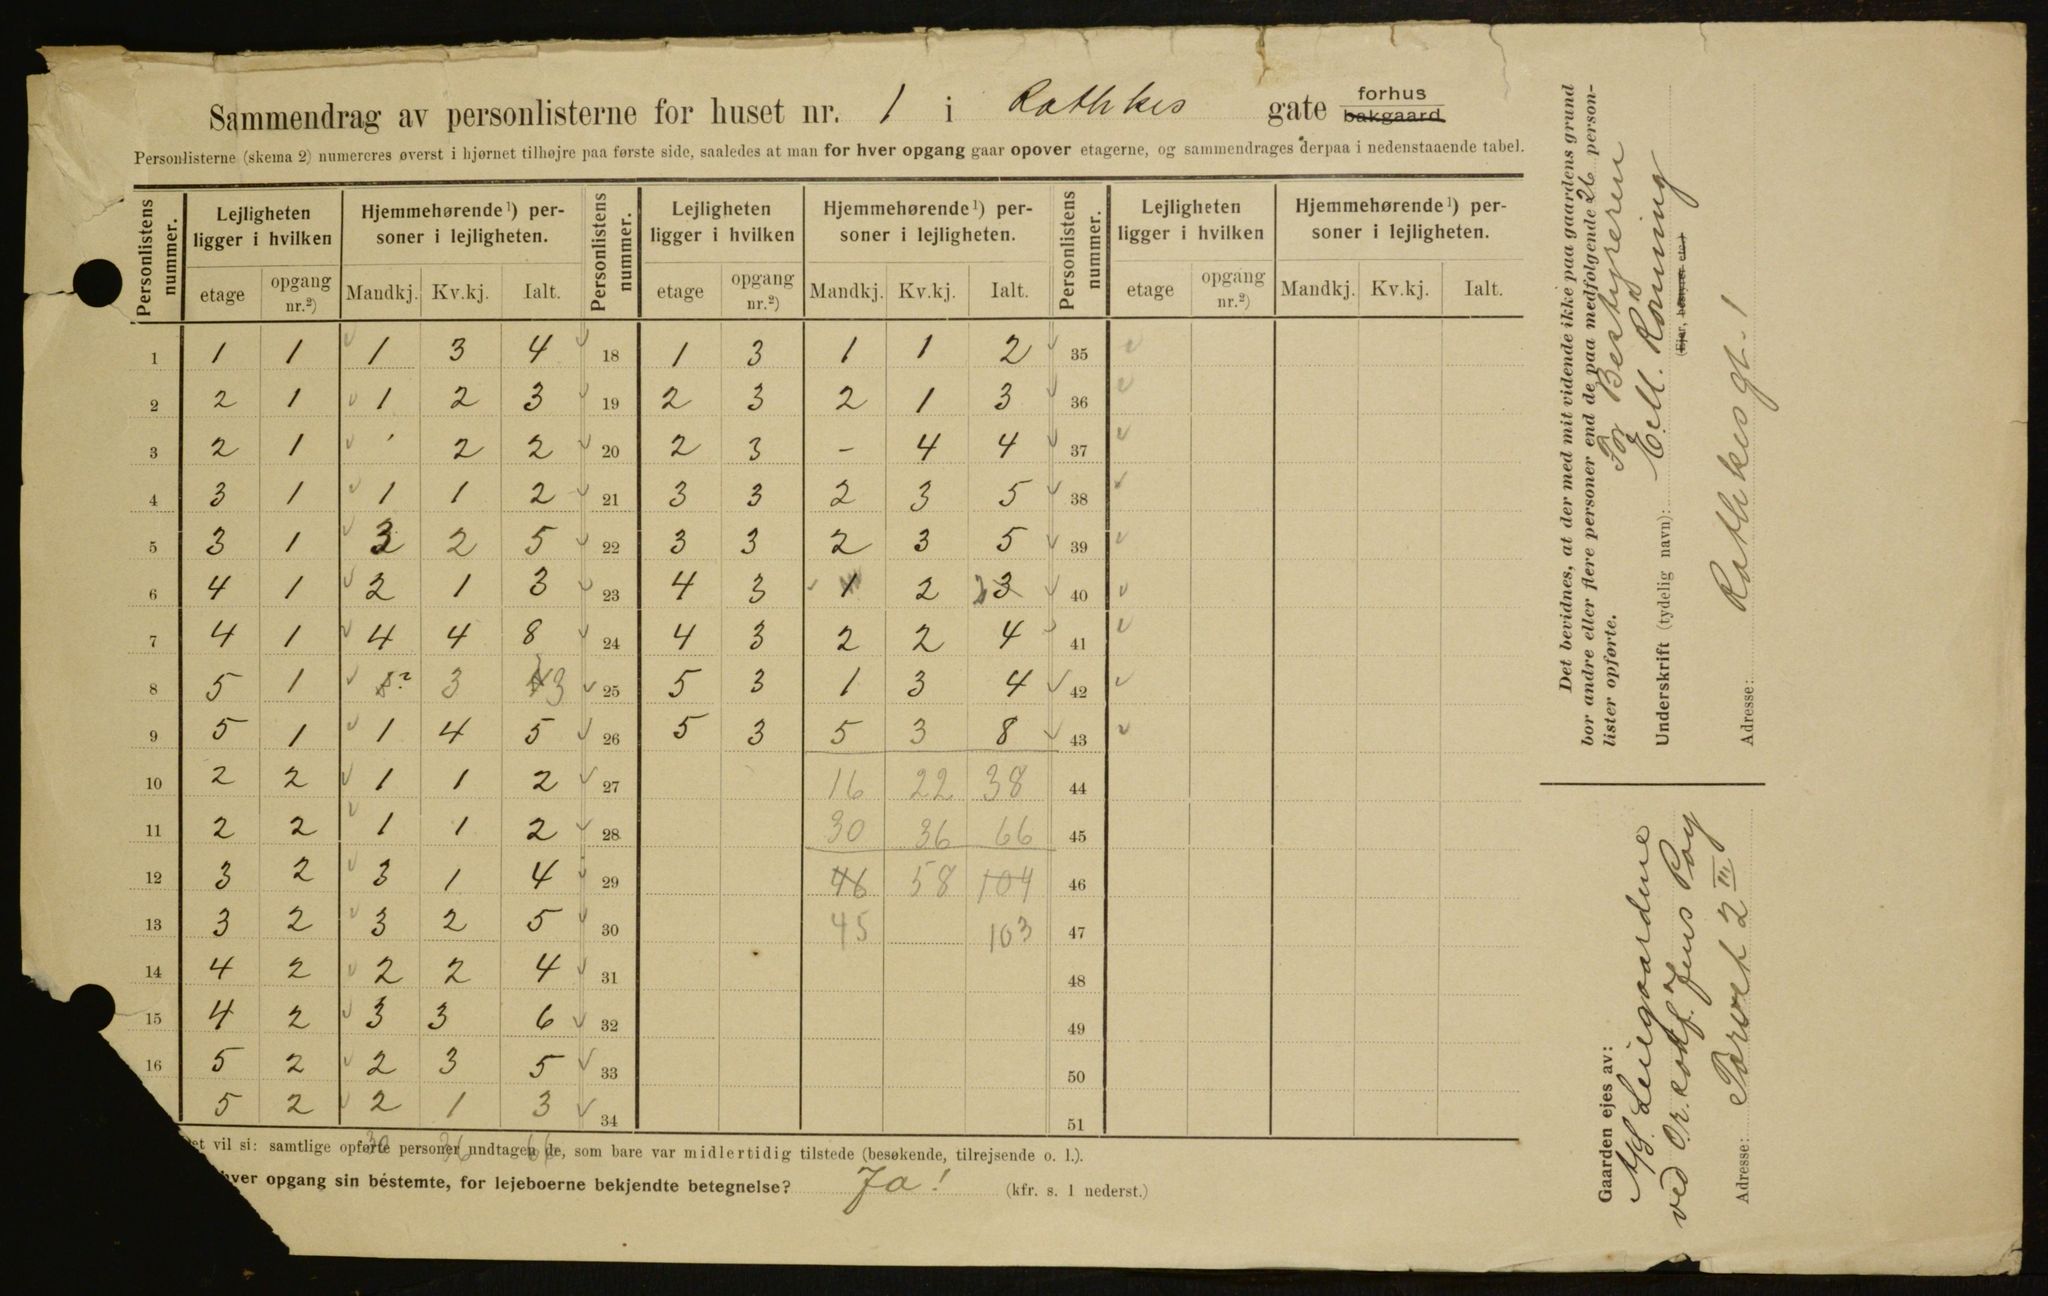 Sammendrag av personlisterne for huset nr. 1 i Rathkes gate forhus
bakgaard
Personlisterne (skema 2) numereres øverst i hjørnet tilhøjre paa første side, saaledes at man for hver opgang gaar opover etagerne, og sammendrages derpaa i nedenstaaende tabel.
Personlistens nummer. Lejligheten ligger i hvilken Hjemmehørende¹) personer i lejligheten. Personlistens nummer. Lejligheten ligger i hvilken Hjemmehørende¹) personer i lejligheten. Personlistens nummer. Lejligheten ligger i hvilken Hjemmehørende¹) personer i lejligheten.
etage opgang nr.²) Mandkj. Kv.kj. Ialt. etage opgang nr.²) Mandkj. Kv.kj. Ialt. etage opgang nr.²) Mandkj. Kv.kj. Ialt.
1 1 1 1 3 4 18 1 3 1 1 2 35
2 2 1 1 2 3 19 2 3 2 1 3 36
3 2 1 ' 2 2 20 2 3 – 4 4 37
4 3 1 1 1 2 21 3 3 2 3 5 38
5 3 1 3 2 5 22 3 3 2 3 5 39
6 4 1 2 1 3 23 4 3 1 2 2 3 40
7 4 1 4 4 8 24 4 3 2 2 4 41
8 5 1 3 3 25 5 3 1 3 4 42
9 5 1 1 4 5 26 5 3 5 3 8 43
10 2 2 1 1 2 27 16 22 38 44
11 2 2 1 1 2 28 30 36 66 45
12 3 2 3 1 4 29 46 58 104 46
13 3 2 3 2 5 30 45 103 47
14 4 2 2 2 4 31 48
15 4 2 3 3 6 32 49
16 5 2 2 3 5 33 50
5 2 2 1 3 34 51
30 36 66
et vil si: samtlige opførte personer undtagen de, som bare var midlertidig tilstede (besøkende, tilrejsende o. l.).
hver opgang sin bestemte, for lejeboerne bekjendte betegnelse? Ja! (kfr. s. 1 nederst.)
Det bevidnes, at der med mit vidende ikke paa gaardens grund
bor andre eller flere personer end de paa medfølgende 26 person-
lister opførte.
For Bestyreren
Underskrift (tydelig navn): E. M. Rönning
(Ejer, bestyrer etc.)
Adresse: Rathkesgt. 1
Gaarden ejes av:
A/S. Leiegaardene
ved Or.sakf. Jens Pay
Adresse: Parvet 2 III